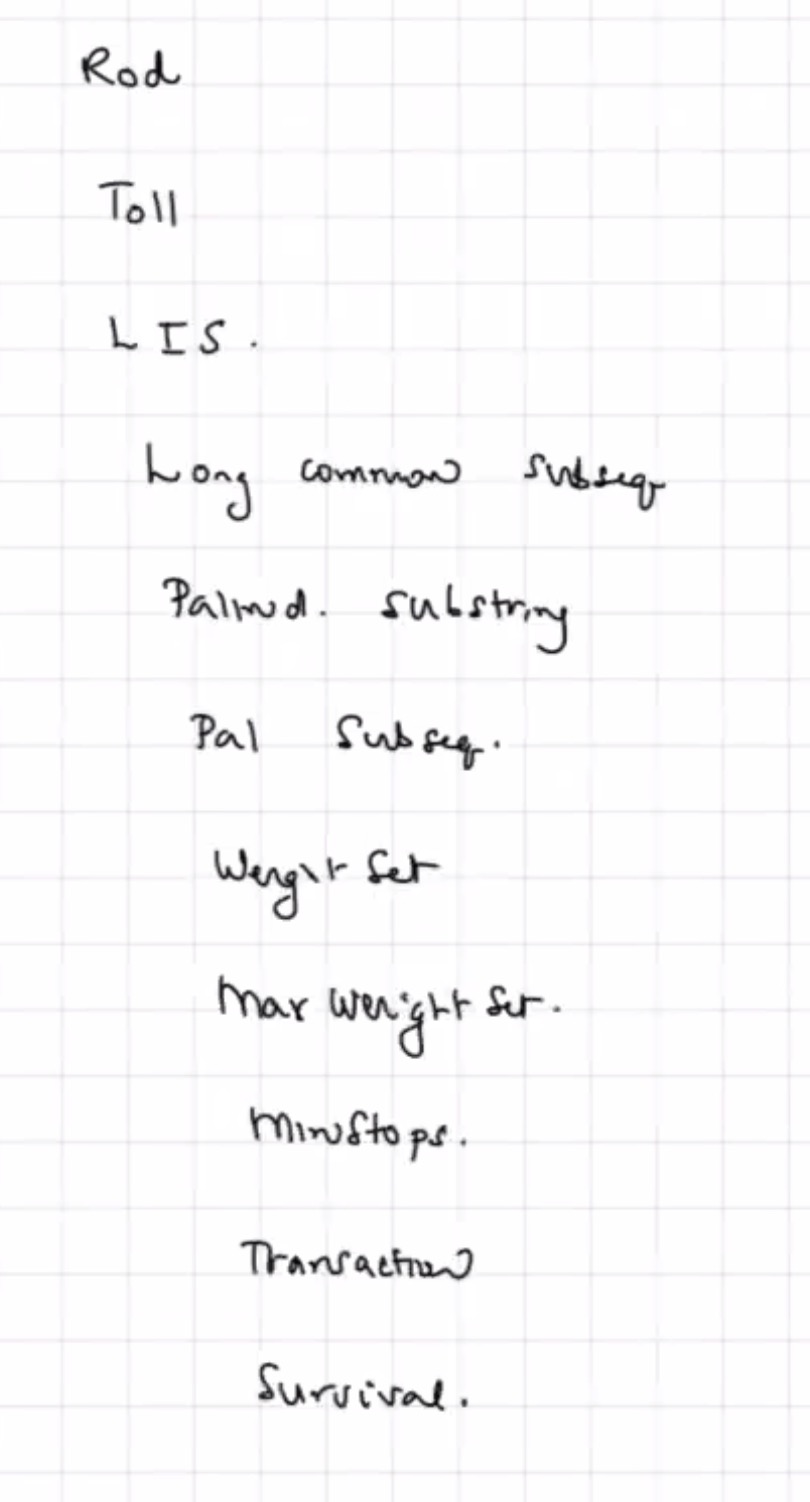 Rod
Toll
LIS.
Long common subseq
Palind. substring
Pal Subseq.
Weight Set
Max Weight Set.
MinStops.
Transaction
Survival.